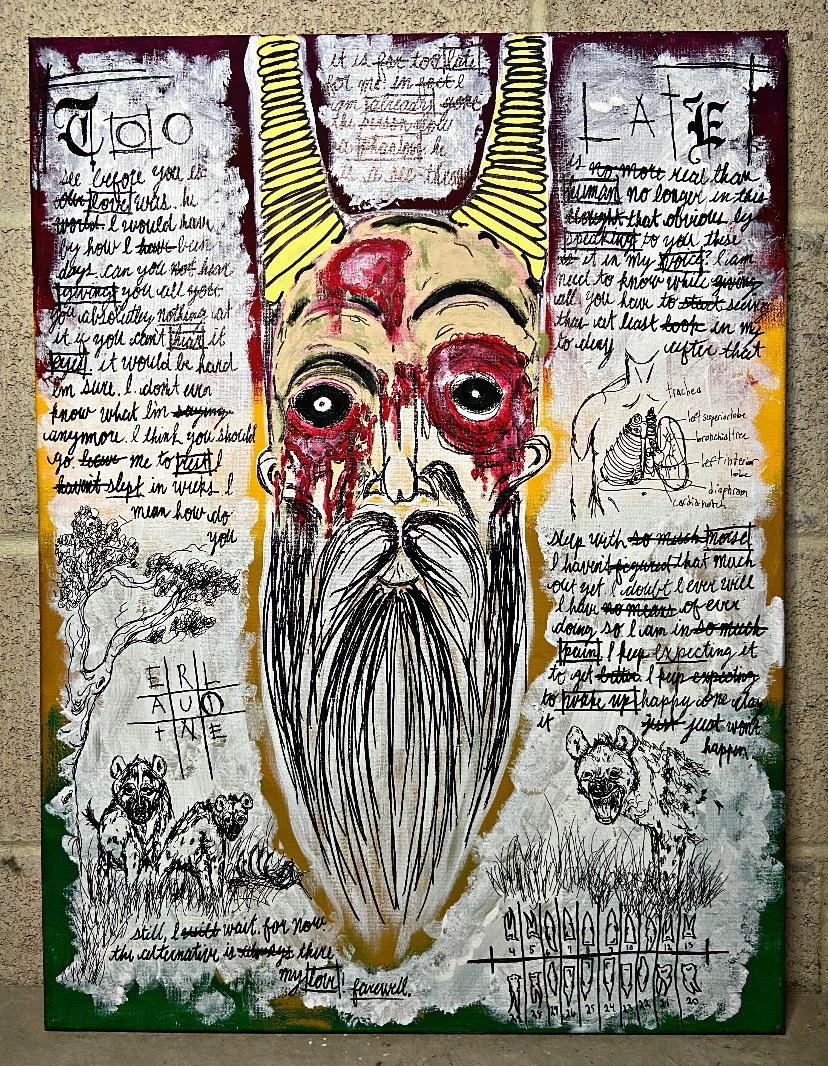 it is far too late
for me in soot I
am already gone
the person you
TOO
see before you is
our love was. he
world I would have
by how I have been
days. can you not hear
giving you all your
you absolutely nothing at
it if you can't hear it
it would be hard
I'm sure. I don't even
know what I'm saying
anymore. I think you should
go. leave me to rest I
haven't slept in weeks I
mean how do
you
E R L
A U O
+ N E
still, I will wait. for now.
the alternative is always there
my love. farewell.
LATE
is no more real than
human no longer in this
thought that obvious by
speaking to you these
it in my voice? I am
need to know while giving
all you have to start seeing
that at least look in my
to deny after that
trachea
left superior lobe
bronchial tree
left inferior
lobe
diaphram
cardia notch
sleep with so much noise
I haven't figured that much
out yet. I doubt I ever will
I have no means of ever
doing so I am in so much
pain. I keep expecting it
to get better. I keep expecting
to wake up happy one day
it just just won't
happen.
4 5 6 7 8 9 10 11 12 13
28 27 26 25 24 23 22 21 20